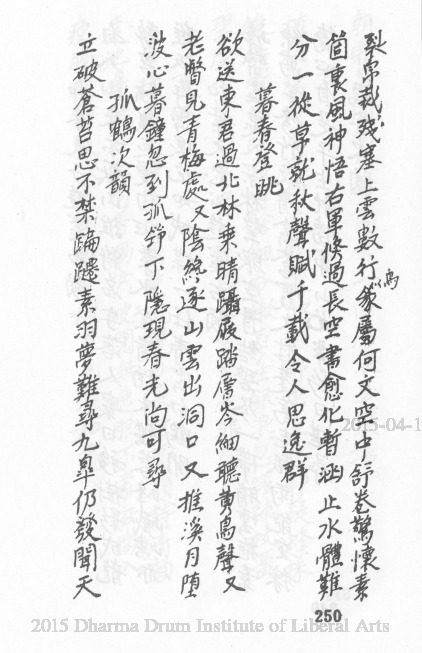 裂帛裁殘塞上雲數行象屬何文空中舒卷驚懷素
箇裏風神悟右軍修過長空書愈化暫涵止水體難
分一從草就秋聲賦千載令人思逸群
暮春登眺
欲送東君過北林乘晴躡屐踏層岑細聽黃鳥聲又
老瞥見青梅處又陰終逐山雲出洞口又推溪月墮
波心暮鐘忽到孤筇下隱現春光尚可尋
孤鶴次韻
立破蒼苔思不禁蹁躚素羽夢難尋九皋仍發聞天
250
2015-04-1
2015 Dharma Drum Institute of Liberal Arts